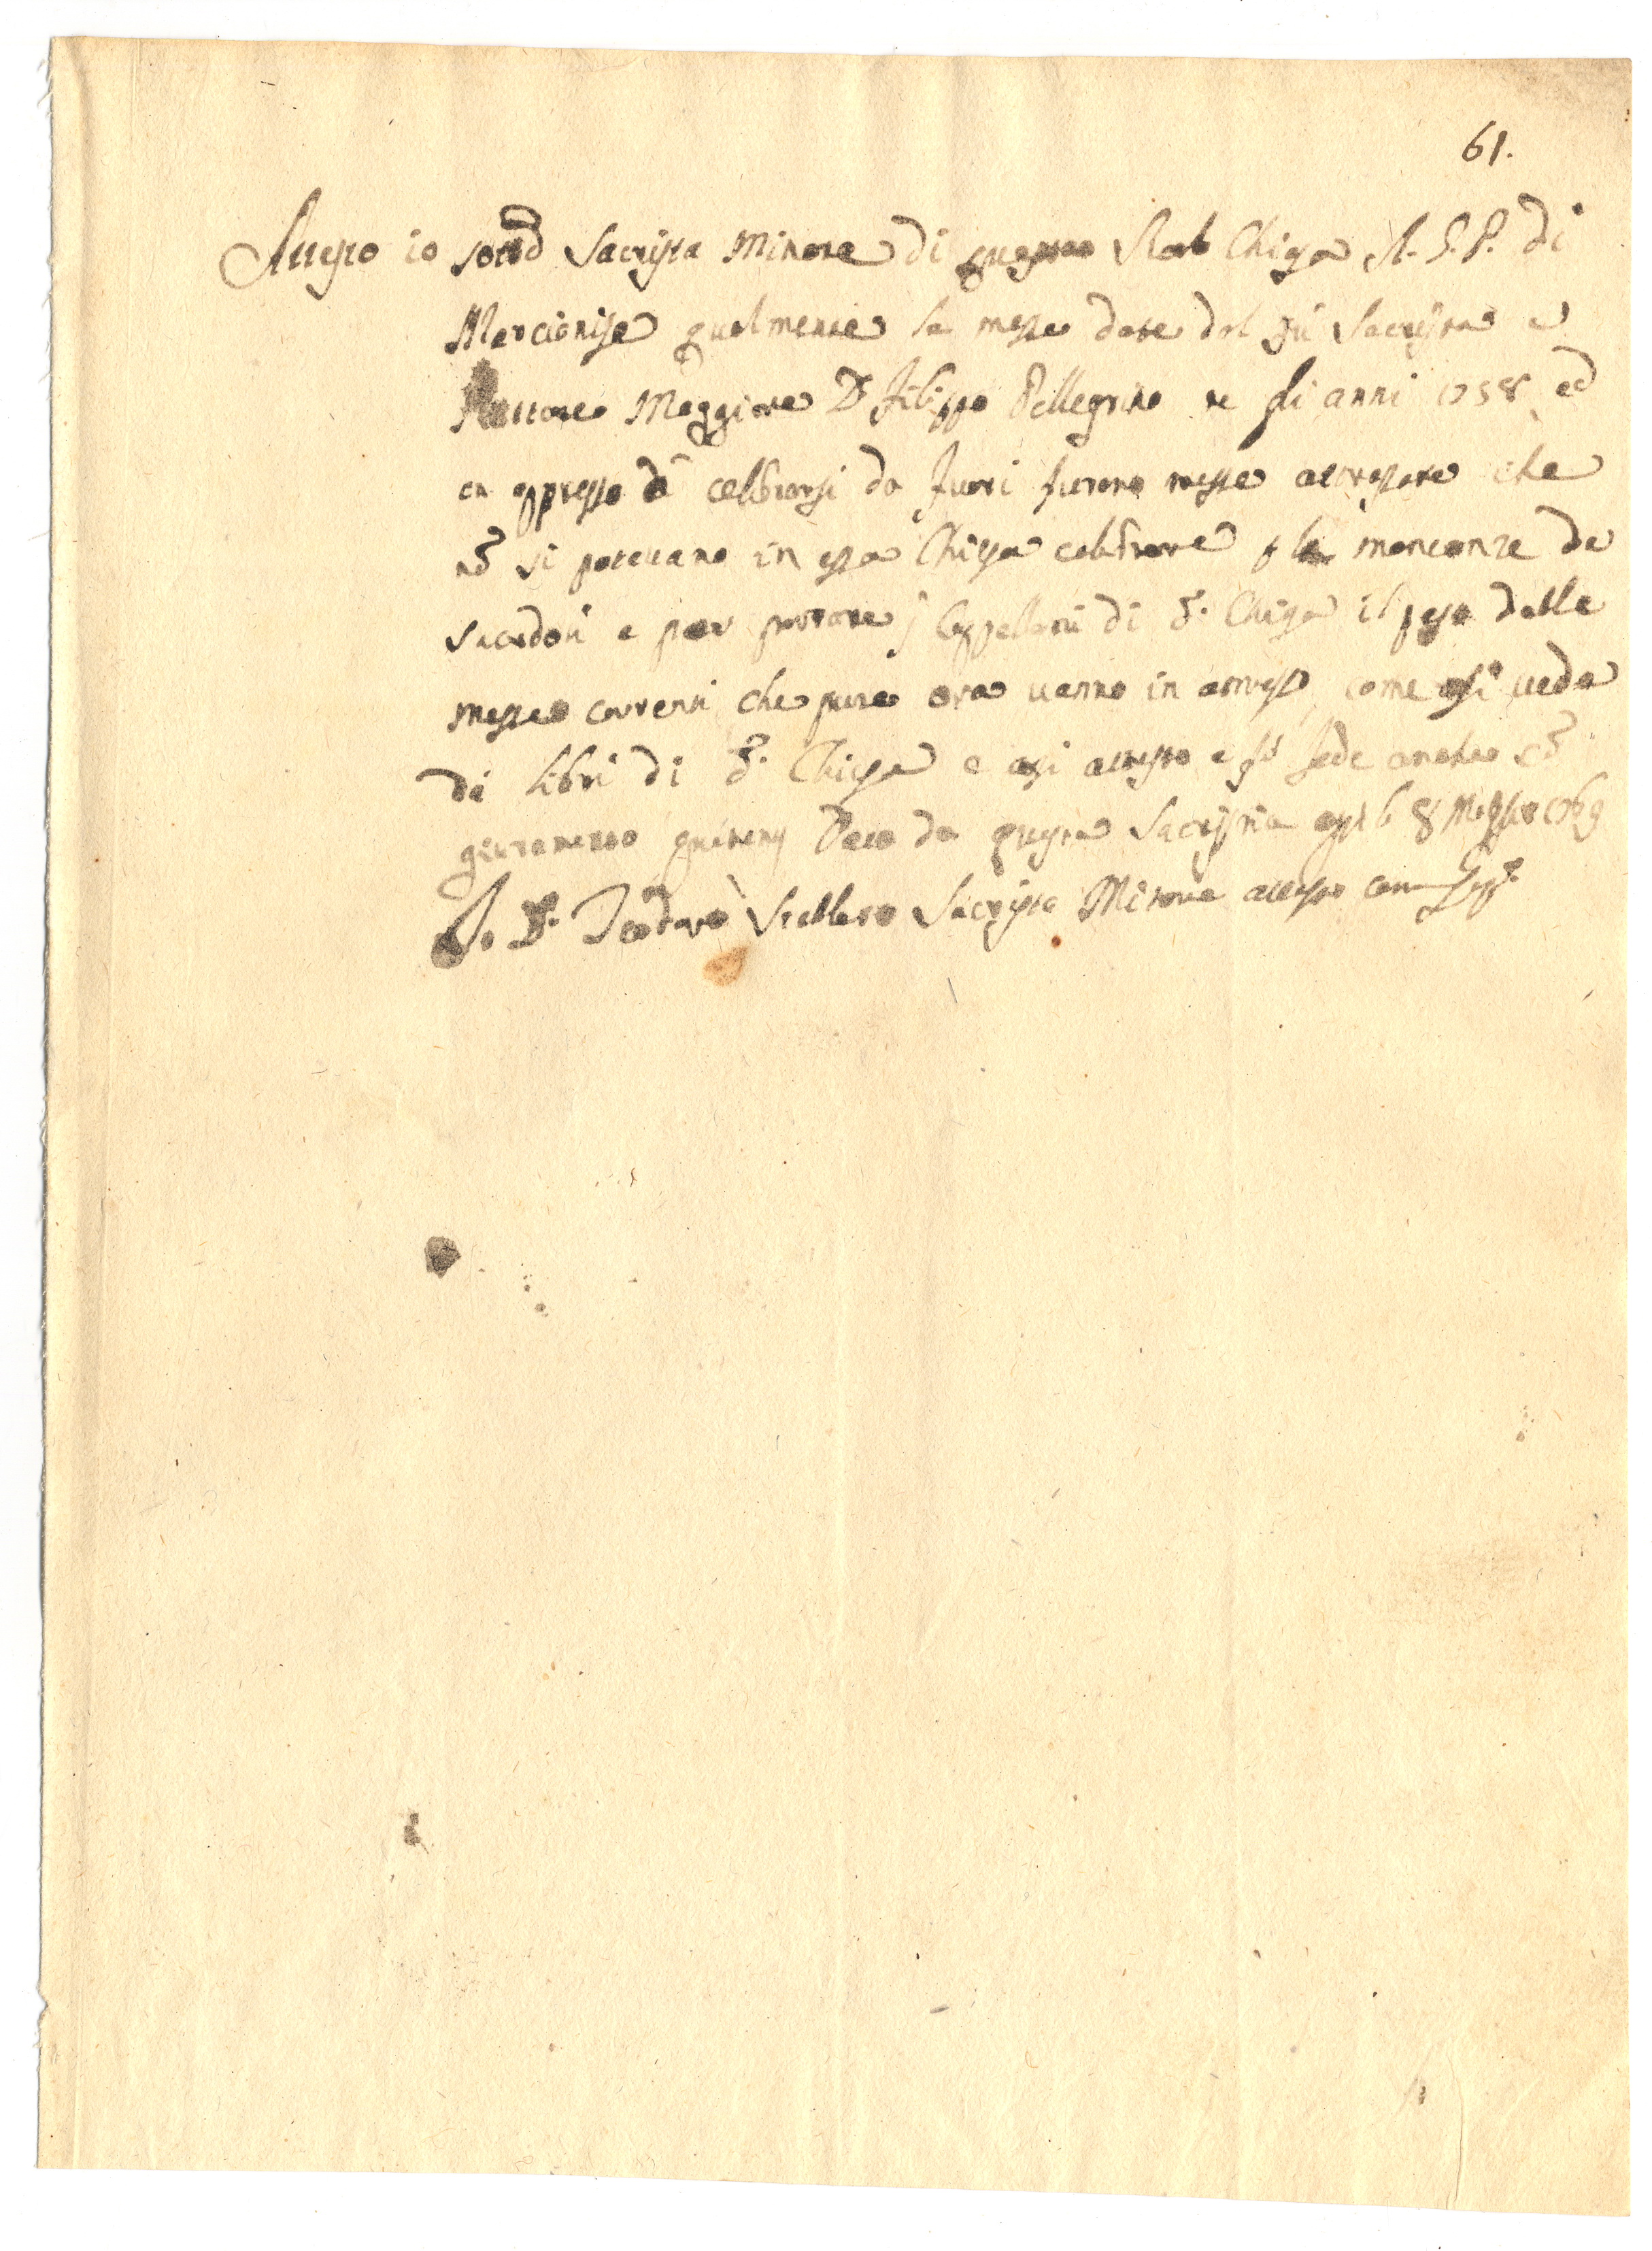 61.
Attesto io sottod Sacrista Minore di questa Real Chiesa A. G. P. di
Marcianise qualmente le messe date dal fù Sacrista e
Rettore Maggiore D. Filippo Pellegrino ne gli anni 1758 ed
in appresso da celebrarsi da fuori furono messe attrassate che
nō si potevano in essa Chiesa celebrare p la mancanza de
Sacerdoti e per portare j Cappellani di d.a Chiesa il peso delle
messe correnti che pure ora vanno in attrasso, come si vede
da libri di d.a Chiesa e così attesto e fò fede anche cō
giuramento Dato da questa Sacristia 8 Maggio 1769
Io D. Teodoro Stellato Sacrista Minore attesto come sop.a